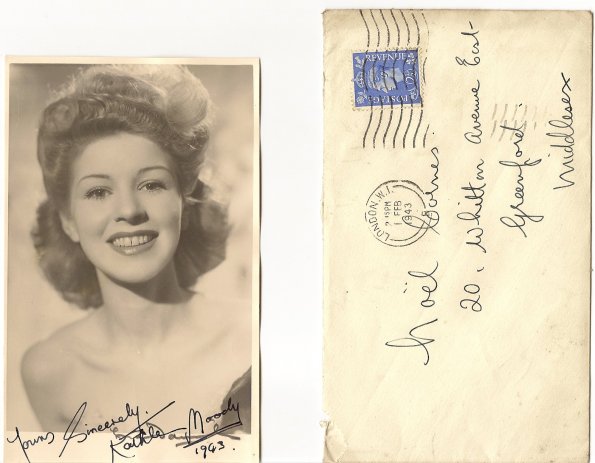 Yours Sincerely.
Kathleen Moody
1943.
POSTAGE
REVENUE
LONDON. W.1.
2 15PM
1 FEB
1943
Noël
20, Whitton Avenue East
Greenford.
Middlesex